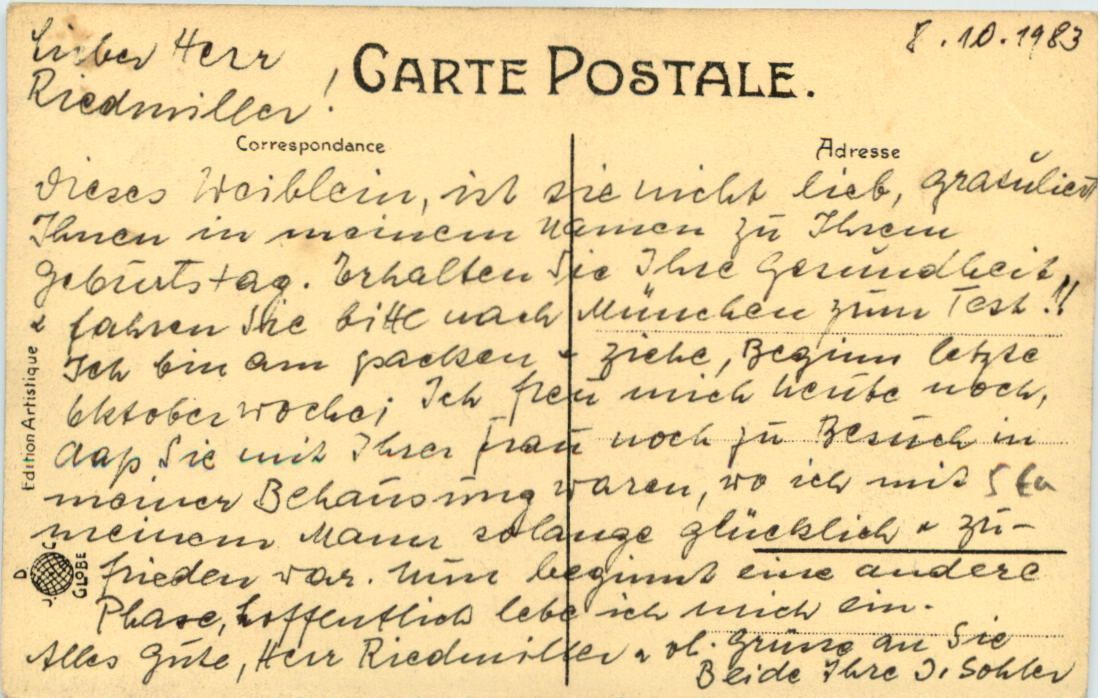 8.10.1983
Lieber Herr
Riedmiller!
CARTE POSTALE.
Correspondance
Adresse
Dieses Weiblein, ist sie nicht lieb, gratuliert
Ihnen in meinem Namen zu Ihrem
Geburtstag. Erhalten Sie Ihre Gesundheit,
& fahren Sie bitte nach München zum Test!!
Ich bin am packen & ziehe, Beginn letzte
Oktoberwoche; Ich freu mich heute noch,
daß Sie mit Ihrer Frau noch zu Besuch in
meiner Behausung waren, wo ich mit
meinem Mann solange glücklich & zu-
frieden war. Nun beginnt eine andere
Phase, hoffentlich lebe ich mich ein.
Alles Gute, Herr Riedmiller & vl. Grüße an Sie
Beide Ihre J. Sohler
Edition Artistique
J. D. C.
GLOBE